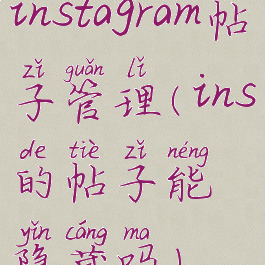 instagram帖
zǐ guǎn lǐ
子管理(ins
de tiè zǐ néng
的帖子能
yǐn cáng ma
隐藏吗)